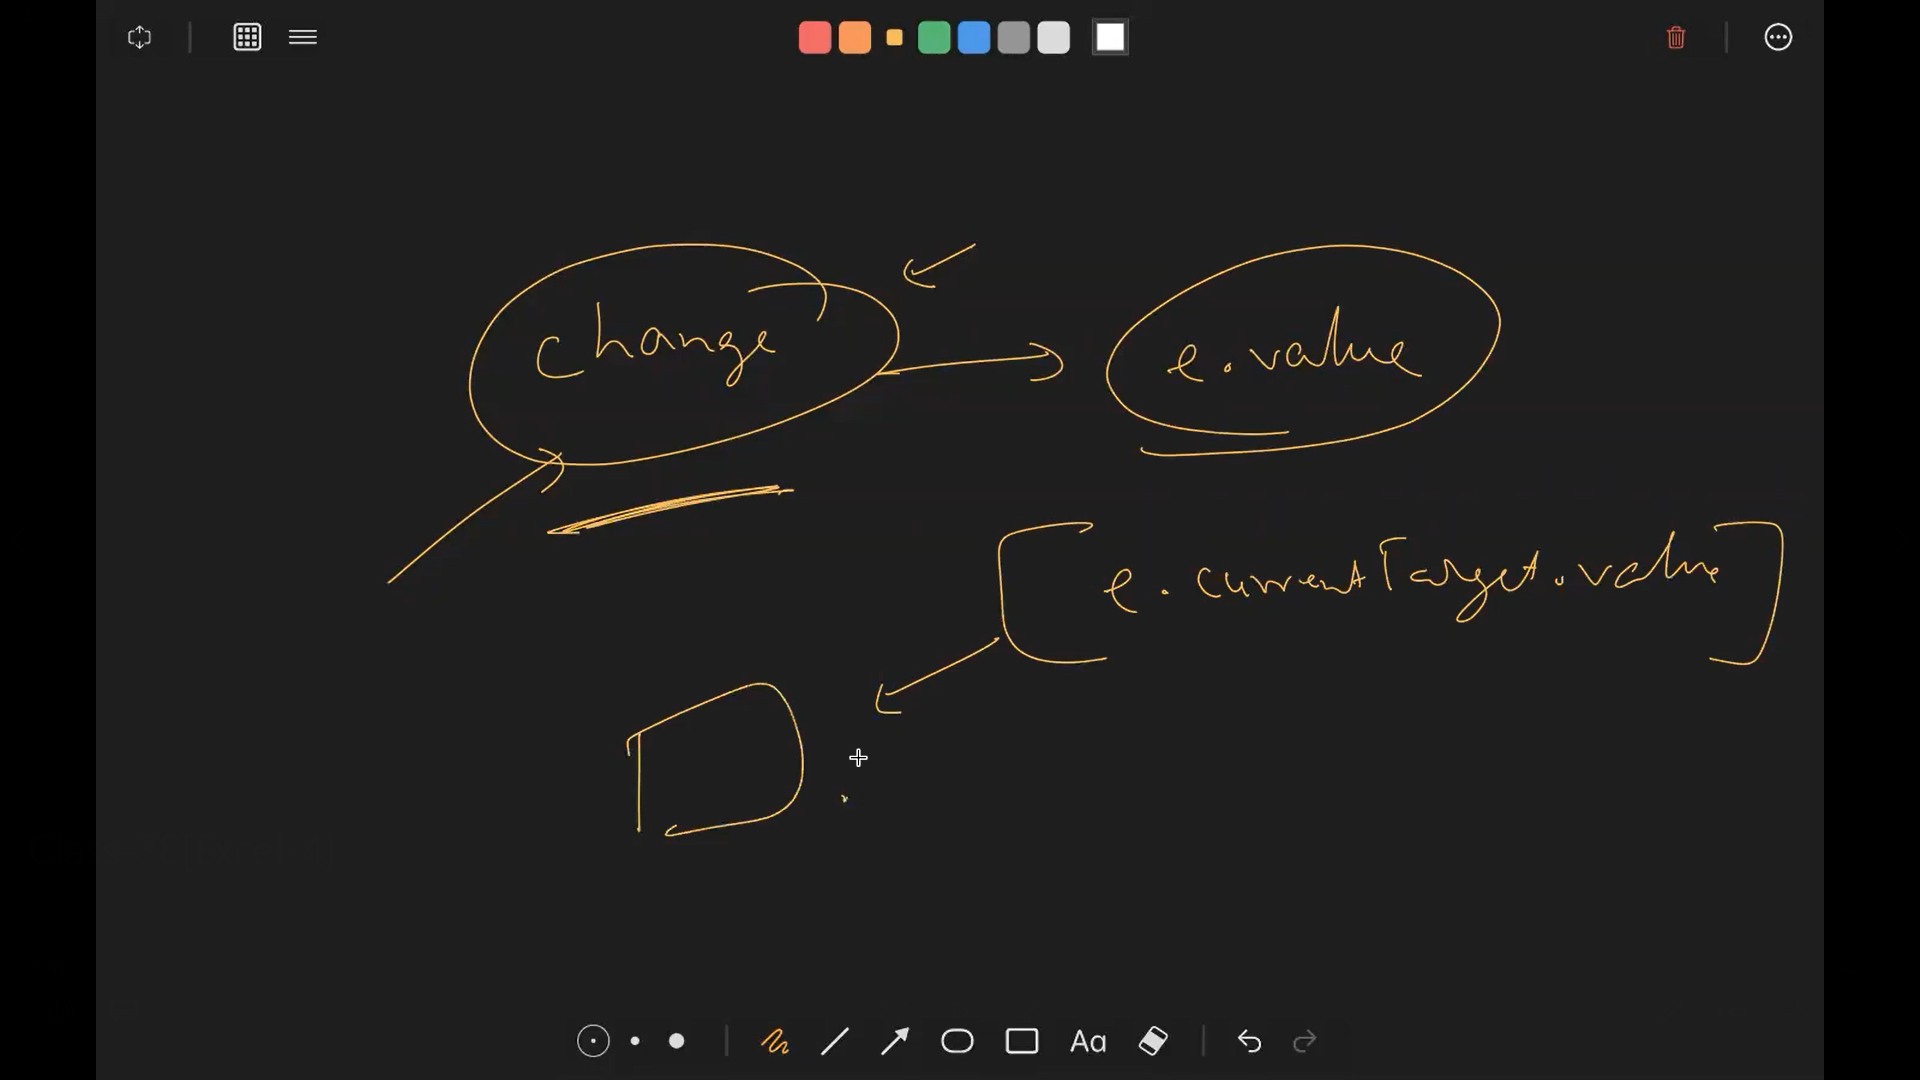 change
e.value
e.currentTarget.value
Aa